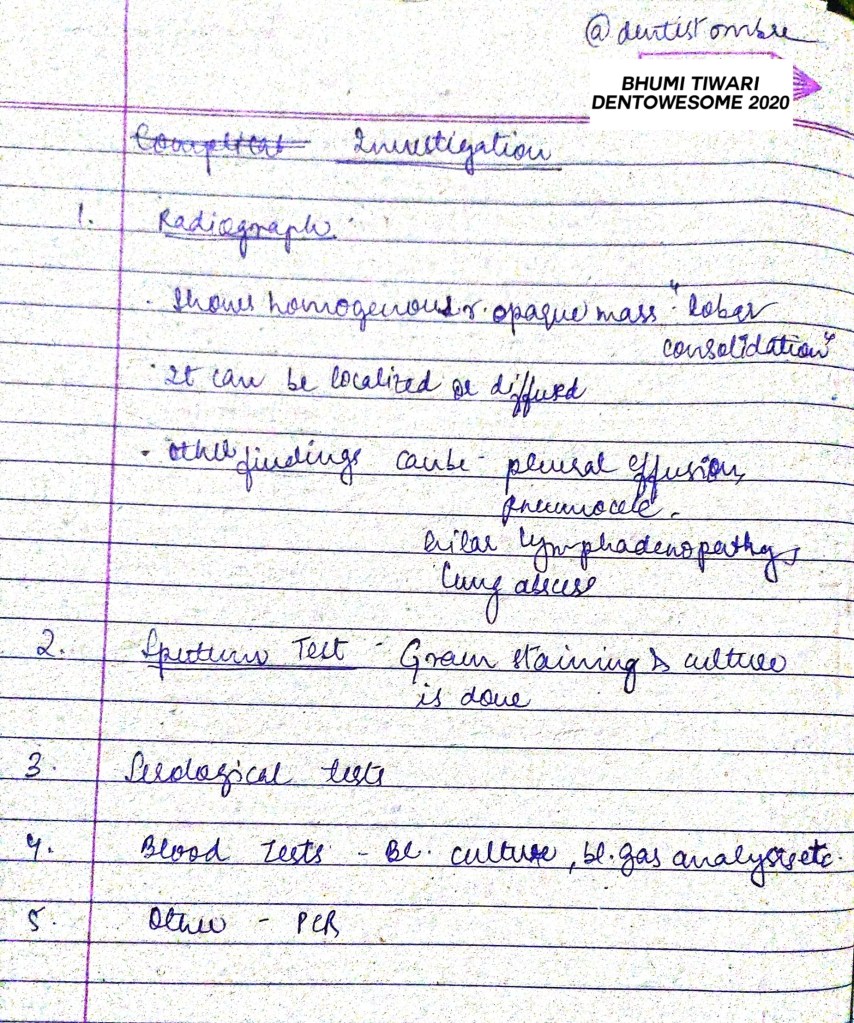 @dentistombre
BHUMI TIWARI
DENTOWESOME 2020
Investigation
1. Radiograph.
· Shows homogenous r. opaque mass "lobar
consolidation"
· It can be localized or diffused
· other findings can be - pleural effusion,
pneumocele.
hilar lymphadenopathy
lung abscess
2. Sputum Test - Gram staining & culture
is done
3. Serological tests
4. Blood Tests - Bl. culture, bl. gas analysis etc.
5. Other - PCR